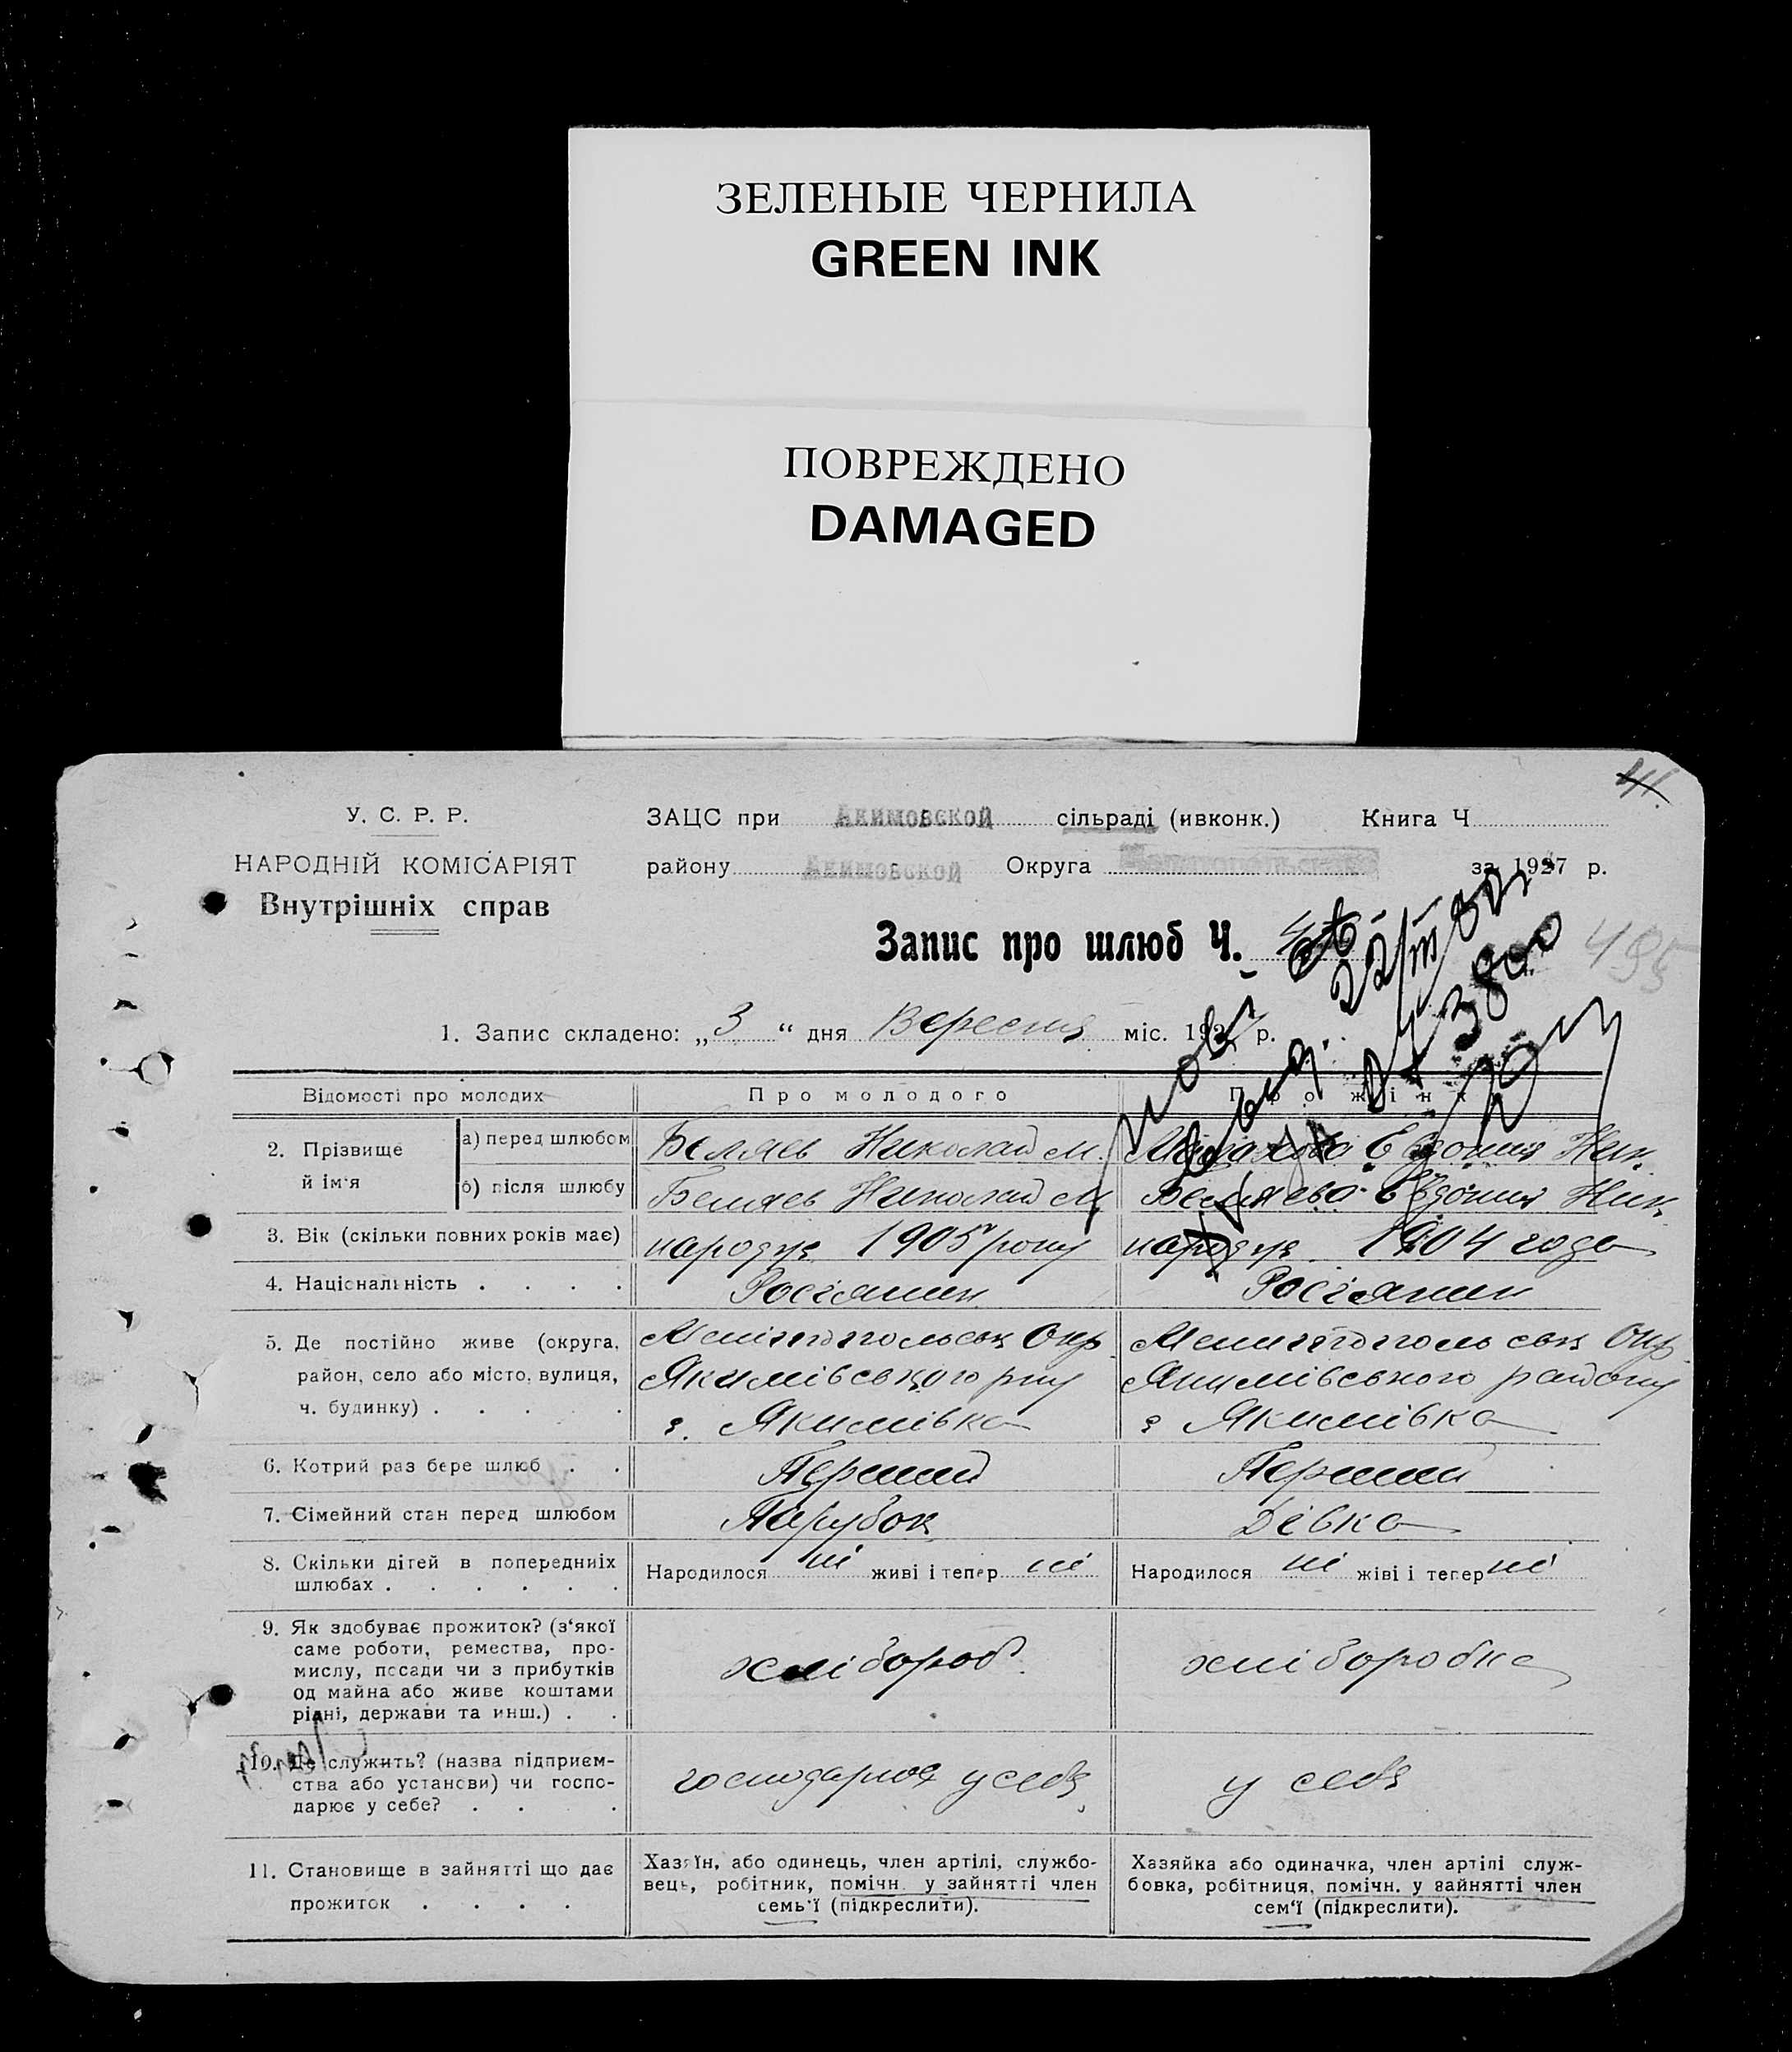 ЗЕЛЕНЫЕ ЧЕРНИЛА
GREEN INK
ПОВРЕЖДЕНО
DAMAGED
У. С. Р. Р.
НАРОДНІЙ КОМІСАРІЯТ
Внутрішніх справ
ЗАЦС при Акимовской сільраді (ивконк.) Книга Ч
району Акимовской Округа за 1927 р.
Запис про шлюб Ч.
495
1. Запис складено: „3“ дня Вересня міс. 1927 р.
Відомості про молодих Про молодого Про жінку
2. Прізвище й ім'я
а) перед шлюбом Беляев Николай М. Евдокия Ник.
б) після шлюбу Беляев Николай М. Беляева Евдокия Ник.
3. Вік (скільки повних років має) народж 1905 року народж 1904 года
4. Національність . . . . Росіянин Росіянин
5. Де постійно живе (округа, Мелітопольськ Окр. Мелитопольськ Окр.
район, село або місто, вулиця, Якимівського р-ну Якимівського району
ч. будинку) . . . . с. Якимівка с Якимівка
6. Котрий раз бере шлюб . . Перший Перший
7. Сімейний стан перед шлюбом Парубок Дівка
8. Скільки дітей в попередніх Народилося ні живі і тепер ні Народилося ні жіві і тепер ні
шлюбах . . . . . .
9. Як здобуває прожиток? (з'якої
саме роботи, ремества, про-
мислу, посади чи з прибутків хлібороб хліборобка
од майна або живе коштами
рідні, держави та инш.) . .
10. Де служить? (назва підприєм-
ства або установи) чи госпо- господарює у себе у себе
дарює у себе? . . .
11. Становище в зайнятті що дає
прожиток . . . .
Хазяїн, або одинець, член артілі, службо-
вець, робітник, помічн. у зайнятті член
семь'ї (підкреслити).
Хазяйка або одиначка, член артілі служ-
бовка, робітниця, помічн. у зайнятті член
сем'ї (підкреслити).